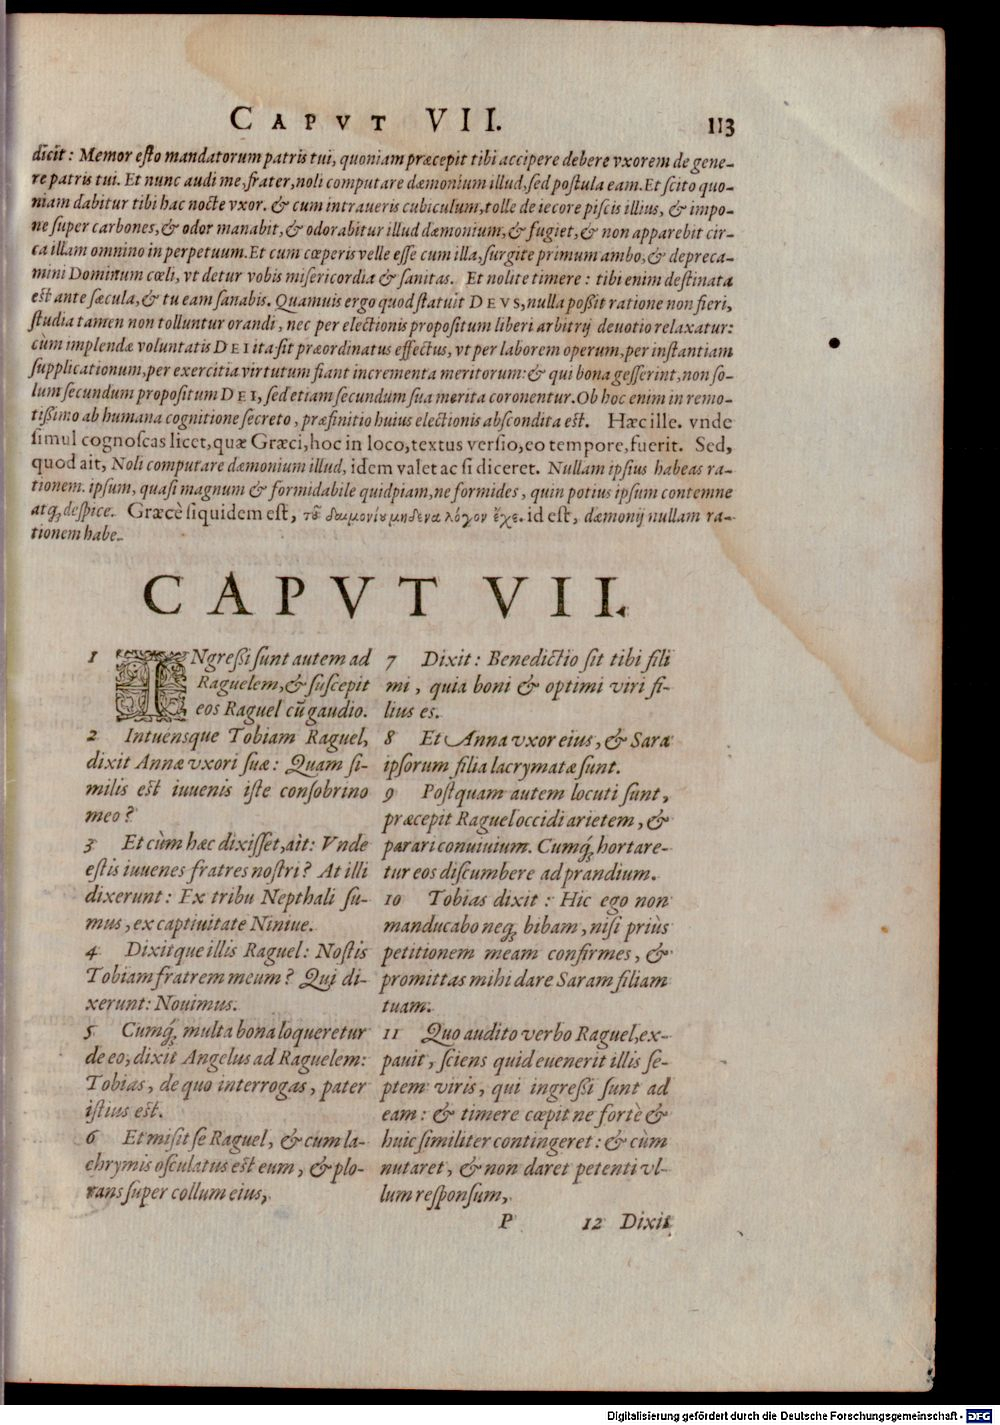 CAPVT VII. 113
dicit: Memor esto mandatorum patris tui, quoniam præcepit tibi accipere debere vxorem de gene-
re patris tui. Et nunc audi me, frater, noli computare dæmonium illud, sed postula eam. Et scito quo-
niam dabitur tibi hac nocte vxor. & cum intraueris cubiculum, tolle de iecore piscis illius, & impo-
ne super carbones, & odor manabit, & odorabitur illud dæmonium, & fugiet, & non apparebit cir-
ca illam omnino in perpetuum. Et cum cœperis velle esse cum illa, surgite primum ambo, & depreca-
mini Dominum cœli, vt detur vobis misericordia & sanitas. Et nolite timere: tibi enim destinata
est ante sæcula, & tu eam sanabis. Quamuis ergo quod statuit DEVS, nulla poßit ratione non fieri,
studia tamen non tolluntur orandi, nec per electionis propositum liberi arbitrij deuotio relaxatur:
cùm implendæ voluntatis DEI ita sit præordinatus effectus, vt per laborem operum, per instantiam
supplicationum, per exercitia virtutum fiant incrementa meritorum: & qui bona gesserint, non so-
lum secundum propositum DEI, sed etiam secundum sua merita coronentur. Ob hoc enim in remo-
tißimo ab humana cognitione secreto, præfinitio huius electionis abscondita est. Hæc ille. vnde
simul cognoscas licet, quæ Græci, hoc in loco, textus versio, eo tempore, fuerit. Sed,
quod ait, Noli computare dæmonium illud, idem valet ac si diceret. Nullam ipsius habeas ra-
tionem. ipsum, quasi magnum & formidabile quidpiam, ne formides, quin potius ipsum contemne
atq; despice. Græcè siquidem est, τοῦ δαιμονίου μηδένα λόγον ἔχε. id est, dæmonij nullam ra-
tionem habe.
CAPVT VII.
1 INgreßi sunt autem ad
Raguelem, & suscepit
eos Raguel cū gaudio.
2 Intuensque Tobiam Raguel,
dixit Annæ vxori suæ: Quam si-
milis est iuuenis iste consobrino
meo?
3 Et cùm hæc dixisset, ait: Vnde
estis iuuenes fratres nostri? At illi
dixerunt: Ex tribu Nepthali su-
mus, ex captiuitate Niniue.
4 Dixitque illis Raguel: Nostis
Tobiam fratrem meum? Qui di-
xerunt: Nouimus.
5 Cumq́; multa bona loqueretur
de eo, dixit Angelus ad Raguelem:
Tobias, de quo interrogas, pater
istius est.
6 Et misit se Raguel, & cum la-
chrymis osculatus est eum, & plo-
rans super collum eius,
7 Dixit: Benedictio sit tibi fili
mi, quia boni & optimi viri fi-
lius es.
8 Et Anna vxor eius, & Sara
ipsorum filia lacrymatæ sunt.
9 Postquam autem locuti sunt,
præcepit Raguel occidi arietem, &
parari conuiuium. Cumq́; hortare-
tur eos discumbere ad prandium.
10 Tobias dixit: Hic ego non
manducabo neq; bibam, nisi priùs
petitionem meam confirmes, &
promittas mihi dare Saram filiam
tuam.
11 Quo audito verbo Raguel, ex-
pauit, sciens quid euenerit illis se-
ptem viris, qui ingreßi sunt ad
eam: & timere cœpit ne fortè &
huic similiter contingeret: & cùm
nutaret, & non daret petenti vl-
lum responsum,
P 12 Dixit
Digitalisierung gefördert durch die Deutsche Forschungsgemeinschaft - DFG